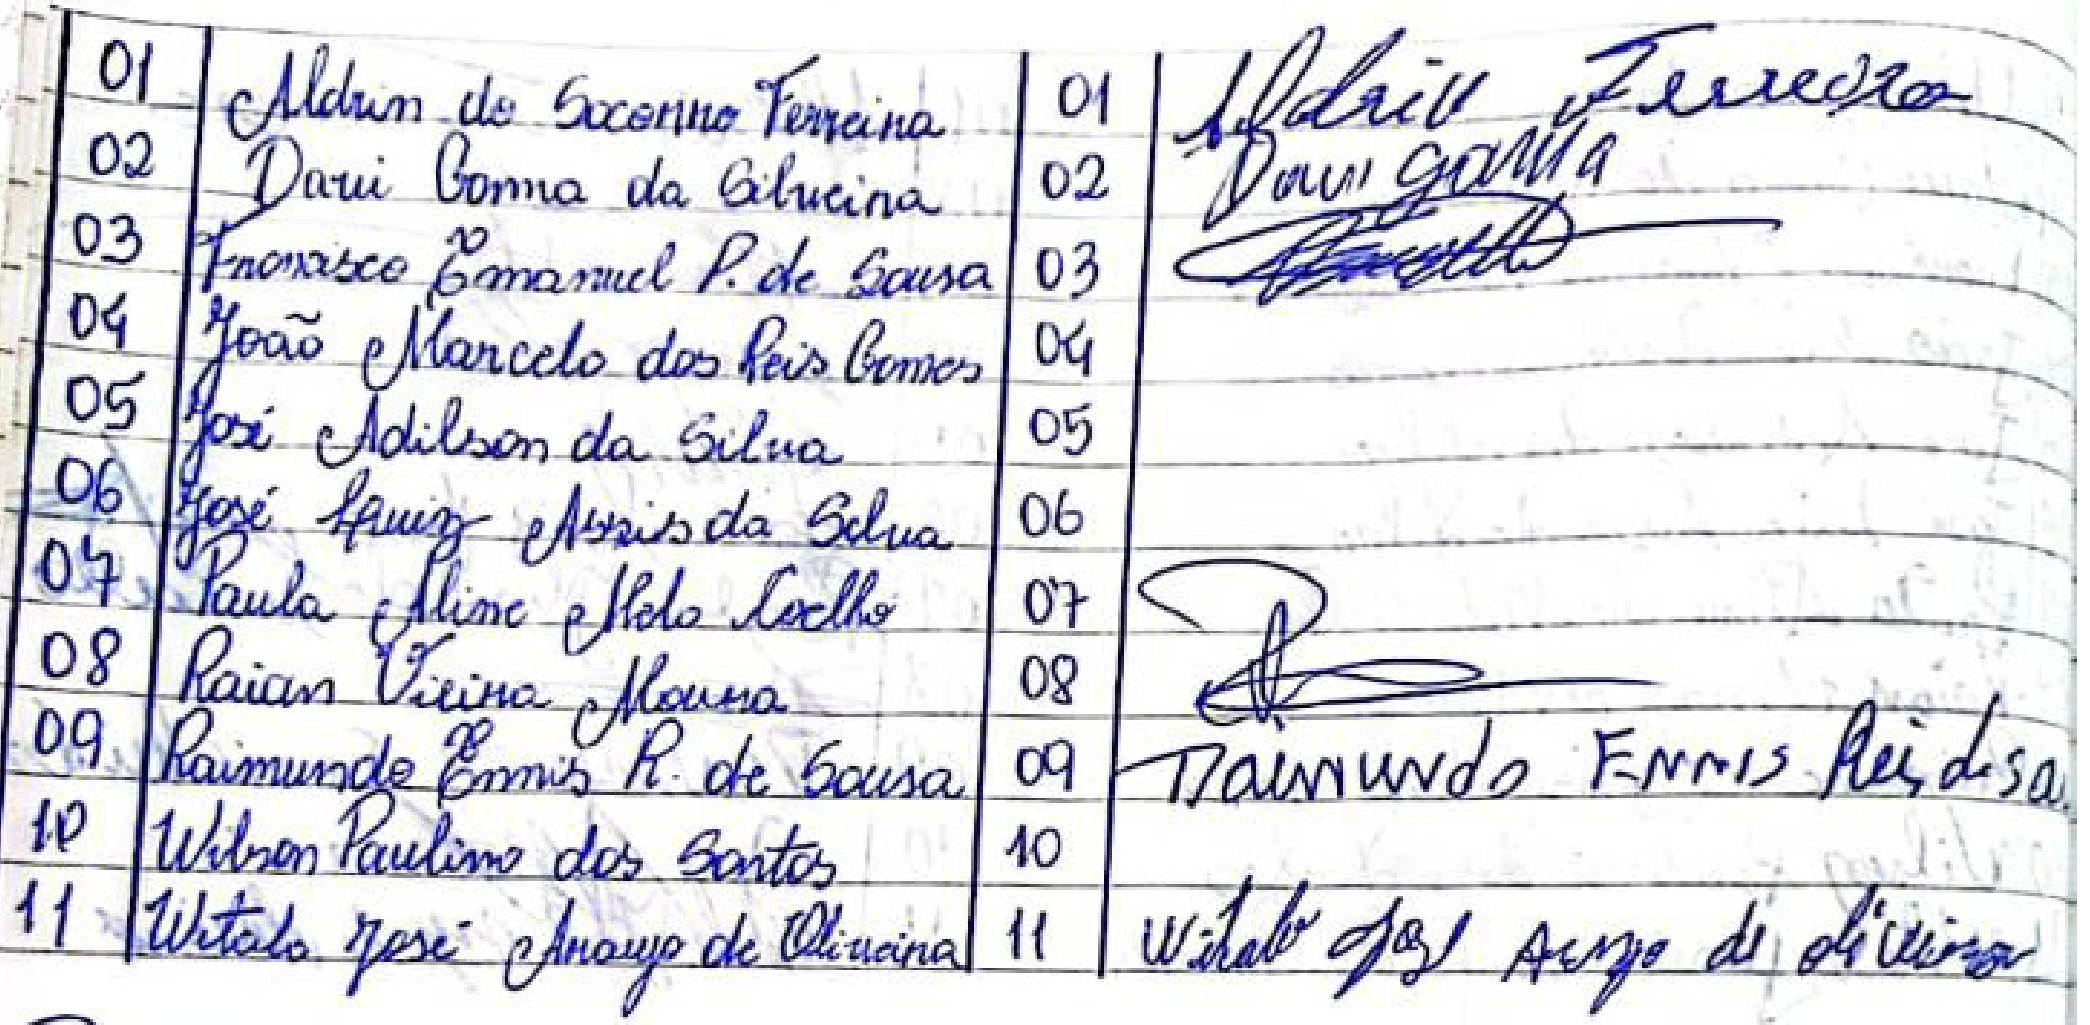 01 Aldrin do Socorro Ferreira 01 Aldrin Ferreira
02 Davi Gama da Silveira 02 Davi gama
03 Francisco Emanuel P. de Sousa 03
04 João Marcelo dos Reis Gomes 04
05 José Adilson da Silva 05
06 José Luiz Assis da Silva 06
07 Paula Aline Melo Coelho 07
08 Raian Vieira Moura 08
09 Raimundo Ennis R. de Sousa 09 Raimundo Ennis Reis de Sa
10 Wilson Paulino dos Santos 10
11 Witalo José Araujo de Oliveira 11 Witalo José Araujo de oliveira